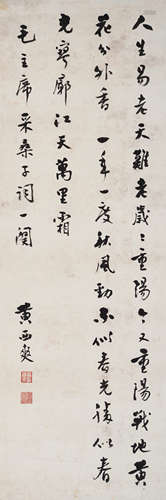 人生易老天難老歲〻重陽今又重陽戰地黃
花分外香一年一度秋風勁不似春光勝似春
光寥廓江天萬里霜
毛主席采桑子詞一闋
黃西爽